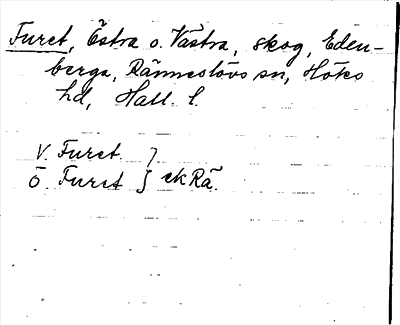 Furet, Östra o. Västra, skog, Eden-
berga, Ränneslövs sn, Höks
hd, Hall. l.
V. Furet }
Ö. Furet } ekRä.